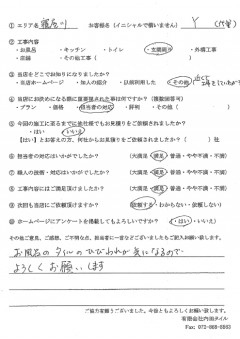 ① エリア名 寝屋川 お客様名（イニシャルで構いません） Y （代筆）
② 工事内容
・お風呂 ・キッチン ・トイレ ・玄関廻り ・外構工事
・店舗 ・その他工事（ ）
③ 当店をどこでお知りになりましたか？
・当店ホームページ ・知人の紹介 ・以前利用した ・その他
④ 当店にお決めになる際に重要視された事は何ですか？（複数回答可）
・プラン ・価格 ・担当者の対応 ・評判 ・その他（ ）
⑤ 今回の施工に至るまでに他社様でもお見積りをご依頼されましたか？
・はい ・いいえ
【はい】とお答えの方、何社からお見積りをご依頼されましたか？ 計 社
⑥ 担当者の対応はいかがでしたか？ （大満足・満足・普通・やや不満・不満）
⑦ 職人の技術・対応はいかがでしたか？ （大満足・満足・普通・やや不満・不満）
⑧ 工事内容にはご満足頂けましたか？ （大満足・満足・普通・やや不満・不満）
⑨ 次回も当店にご依頼頂けますか？ （依頼する・わからない・依頼しない）
⑩ ホームページにアンケートを掲載してもよろしいですか？ （はい・いいえ）
その他ご意見、ご感想、ご不明な点、担当者に一言などございましたらご記入お願い致します。
お風呂のタイルのひびわれが気になるので
よろしくお願いします
ご協力有難うございました。今後ともよろしくお願い致します。
有限会社内田タイル